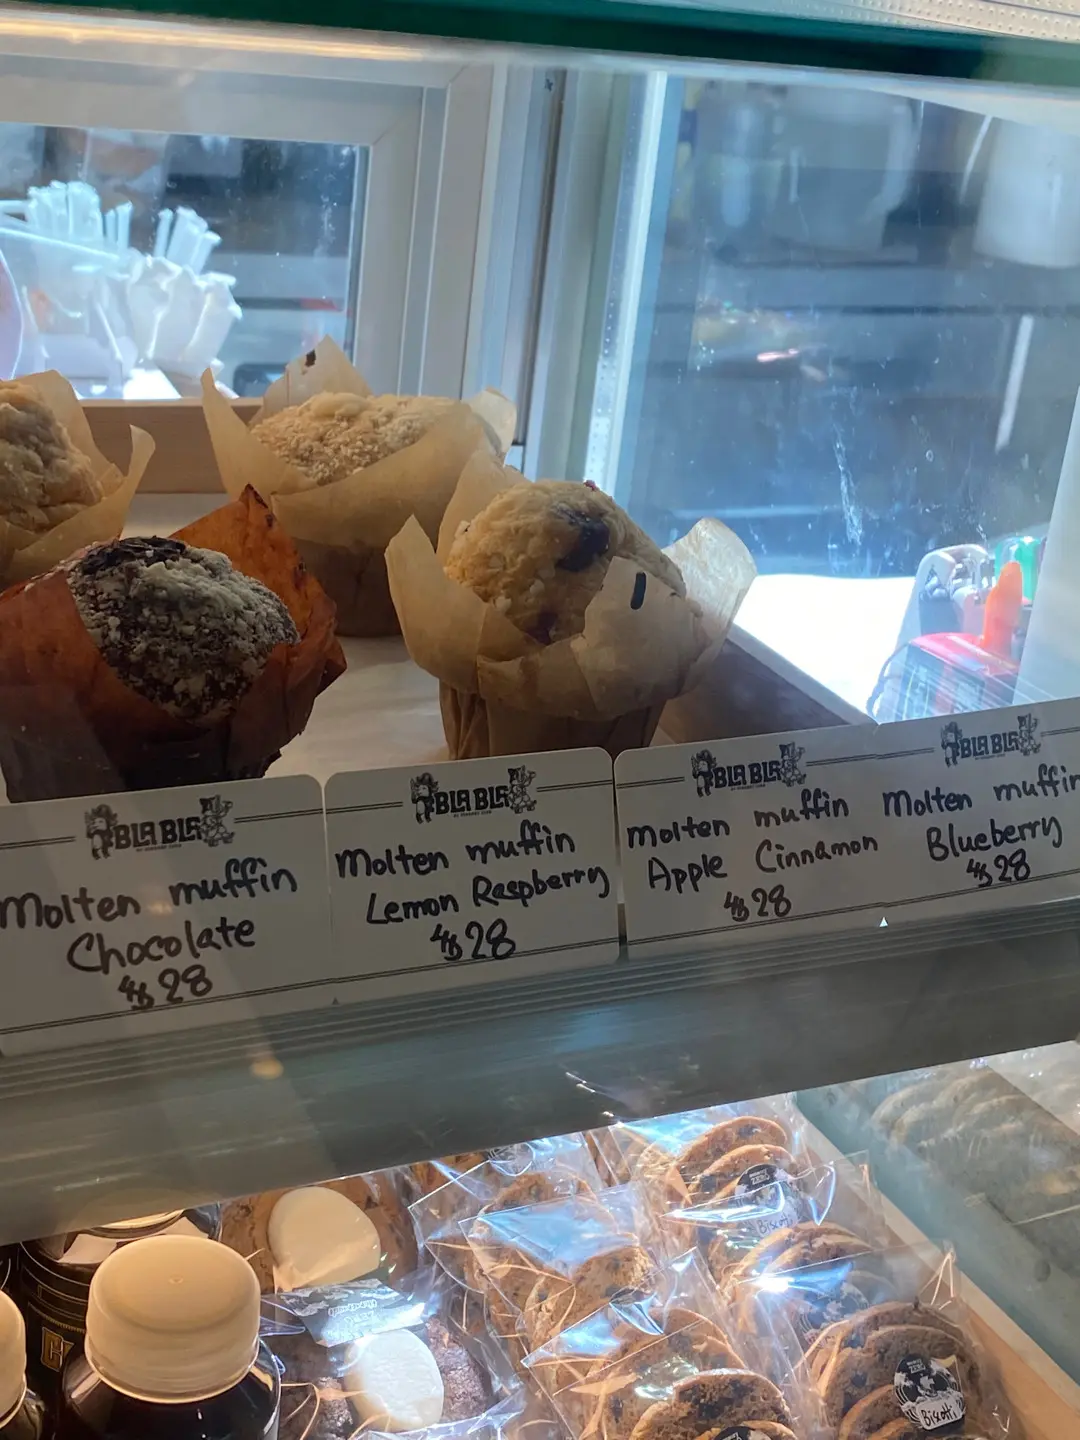 BLA BLA
Molten muffin
Chocolate
$28
BLA BLA
Molten muffin
Lemon Raspberry
$28
BLA BLA
Molten muffin
Apple Cinnamon
$28
BLA BLA
Molten muffin
Blueberry
$28
Biscotti
Biscotti